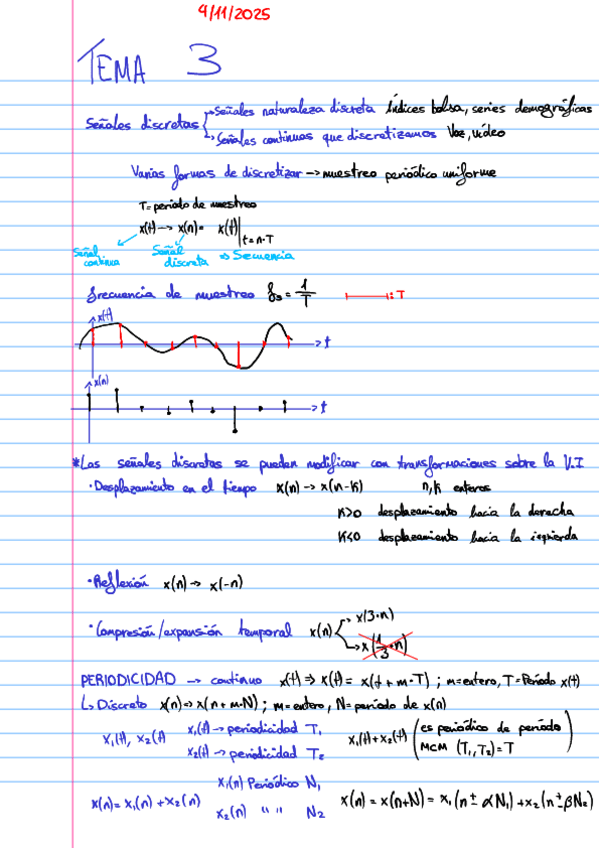 4/11/2025
TEMA 3
Señales discretas
Señales naturaleza discreta Índices bolsa, series demográficas
Señales continuas que discretizamos Voz, vídeo
Varias formas de discretizar → muestreo periódico uniforme
T = periodo de muestreo
x(t) → x(n) = x(t)|t=n·T
Señal continua
Señal discreta ⇒ Secuencia
frecuencia de muestreo fs = 1/T
: T
x(t)
t
x(n)
t
*Las señales discretas se pueden modificar con transformaciones sobre la V.I
·Desplazamiento en el tiempo x(n) → x(n-k) n,k enteros
k>0 desplazamiento hacia la derecha
k<0 desplazamiento hacia la izquierda
·Reflexión x(n) → x(-n)
·Compresión/expansión temporal x(n)
x(3·n)
x(1/3·n)
PERIODICIDAD → continuo x(t) ⇒ x(t) = x(t + m·T) ; m=entero, T=Período x(t)
↳ Discreto x(n) ⇒ x(n + m·N) ; m=entero, N=periodo de x(n)
x₁(t), x₂(t)
x₁(t) → periodicidad T₁
x₂(t) → periodicidad T₂
x₁(t)+x₂(t) (es periódico de periodo MCM (T₁,T₂)=T)
x(n) = x₁(n) + x₂(n)
x₁(n) Periódico N₁
x₂(n) " " N₂
x(n) = x(n+N) = x₁(n ± αN₁) + x₂(n ± βN₂)